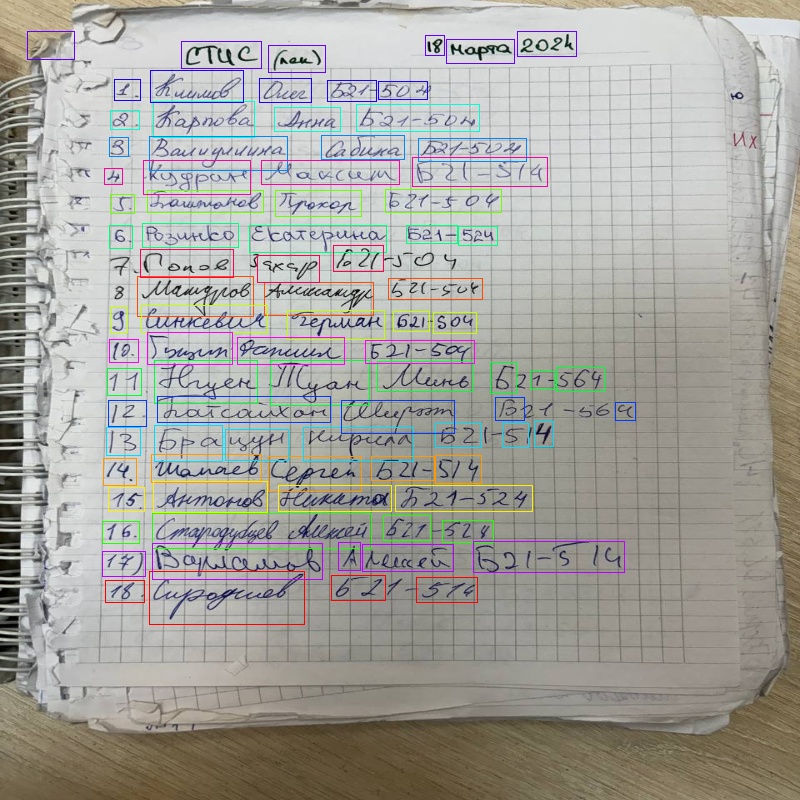 СТИС (лек) 18 марта 2024
1. Климов Олег Б21-504
2. Карпова Анна Б21-504
3 Валиуллина Сабина Б21-504
4 Кудрин Максим Б21-514
5. Баштанов Прохор Б21-504
6. Розинко Екатерина Б21-524
7. Попов Захар Б21-504
8 Мамдров Александр Б21-504
9 Синкевич Герман Б21-504
10. Гущин Б21-504
11 Нгуен Туан Минь Б21-564
12. Батсайхон Б21-564
13 Бращун Кирилл Б21-514
14. Шапаев Сергей Б21-514
15. Антонов Никита Б21-524
16. Стародубцев Алексей Б21-524
17) Варламов Алексей Б21-514
18. Б21-514
Их